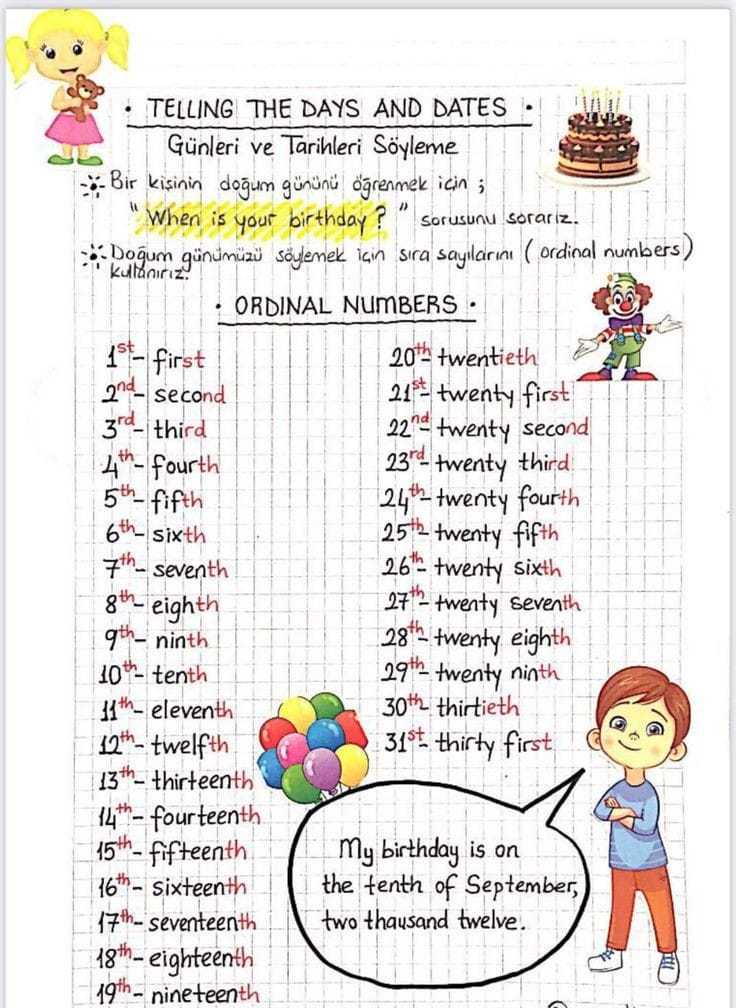 • TELLING THE DAYS AND DATES •
Günleri ve Tarihleri Söyleme
Bir kişinin doğum gününü öğrenmek için ;
"When is your birthday?" sorusunu sorarız.
Doğum günümüzü söylemek için sıra sayılarını ( ordinal numbers)
kullanırız.
• ORDINAL NUMBERS •
1st- first
2nd- second
3rd- third
4th- fourth
5th- fifth
6th- sixth
7th- seventh
8th- eighth
9th- ninth
10th- tenth
11th- eleventh
12th- twelfth
13th- thirteenth
14th- fourteenth
15th- fifteenth
16th- sixteenth
17th- seventeenth
18th- eighteenth
19th- nineteenth
20th- twentieth
21st- twenty first
22nd- twenty second
23rd- twenty third
24th- twenty fourth
25th- twenty fifth
26th- twenty sixth
27th- twenty seventh
28th- twenty eighth
29th- twenty ninth
30th- thirtieth
31st- thirty first
My birthday is on
the tenth of September,
two thausand twelve.